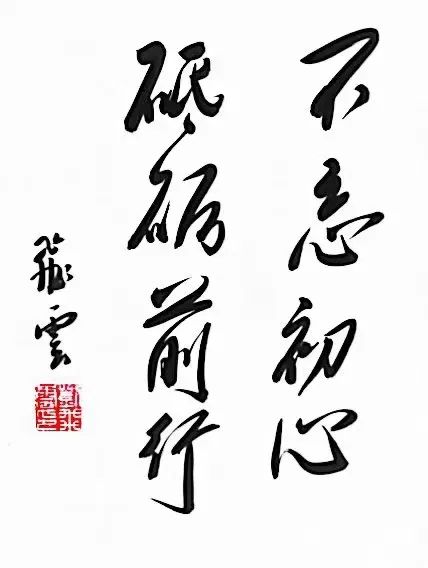 不忘初心
砥砺前行
飛雲